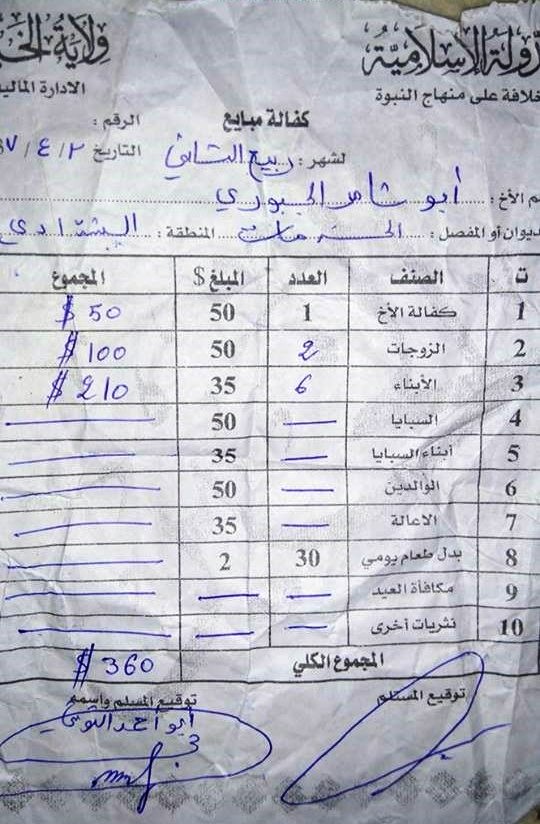 دولة الإسلامية ولاية الخي
خلافة على منهاج النبوة الادارة المالية
كفالة مبايع الرقم :
لشهر : ربيع الثاني التاريخ ٢ / ٤ / ٧
م الأخ : أبو ثامر الجبوري
ديوان أو المفصل : المنطقة :
ت الصنف العدد المبلغ $ المجموع
1 كفالة الأخ 1 50 $ 50
2 الزوجات 2 50 $ 100
3 الأبناء 6 35 $ 210
4 السبايا — 50 —
5 أبناء السبايا — 35 —
6 الوالدين — 50 —
7 الاعالة — 35 —
8 بدل طعام يومي 30 2 —
9 مكافأة العيد — — —
10 نثريات أخرى — — —
المجموع الكلي $ 360
توقيع المستلم توقيع المسلم واسمه
أبو أحمد